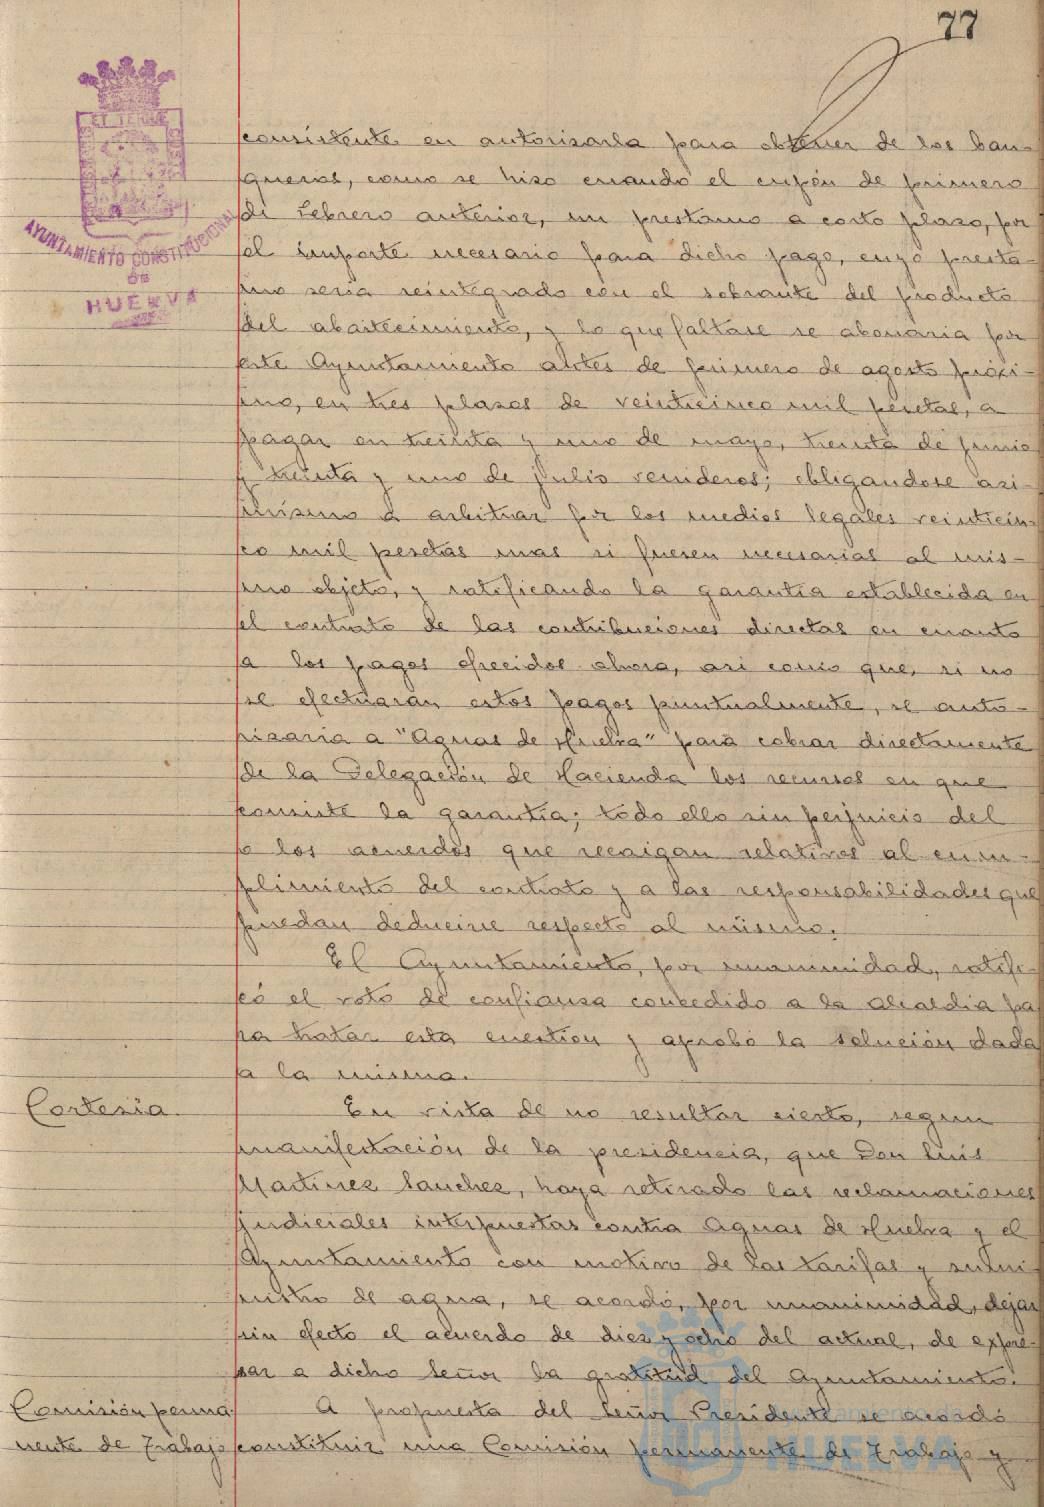 77
ET TERRÆ
AYUNTAMIENTO CONSTITUCIONAL
DE
HUELVA
consistente en autorisarla para obtener de los ban-
queros, como se hiso cuando el cupón de primero
de Febrero anterior, un prestamo a corto plaso, por
el importe necesario para dicho pago, cuyo presta-
mo seria reintegrado con el sobrante del producto
del abastecimiento, y lo que faltase se abonaria por
este Ayuntamiento antes de primero de agosto próxi-
mo, en tres plasos de veinticinco mil pesetas, a
pagar en treinta y uno de mayo, treinta de junio
y treinta y uno de julio venideros; obligandose asi-
mismo a arbitrar por los medios legales veinticin-
co mil pesetas mas si fuesen necesarias al mis-
mo objeto, y ratificando la garantia establecida en
el contrato de las contribuciones directas en cuanto
a los pagos ofrecidos ahora, asi como que, si no
se efectuaran estos pagos puntualmente, se auto-
risaria a "Aguas de Huelva" para cobrar directamente
de la Delegación de Hacienda los recursos en que
consiste la garantia; todo ello sin perjuicio del
o los acuerdos que recaigan relativos al cum-
plimiento del contrato y a las responsabilidades que
puedan deducirse respecto al mismo.
El Ayuntamiento, por unanimidad, ratifi-
có el voto de confiansa concedido a la alcaldia pa
ra tratar esta cuestion y aprobó la solución dada
a la misma.
Cortesia. En vista de no resultar cierto, segun
manifestación de la presidencia, que Don Luis
Martines Sanches, haya retirado las reclamaciones
judiciales interpuestas contra Aguas de Huelva y el
Ayuntamiento con motivo de las tarifas y sumi-
nistro de agua, se acordó, por unanimidad, dejar
sin efecto el acuerdo de dies y ocho del actual, de expre-
sar a dicho Señor la gratitud del Ayuntamiento.
Comisión perma- A propuesta del Señor Presidente se acordó
nente de Trabajo constituir una Comisión permanente de Trabajo y
Ayuntamiento de
HUELVA